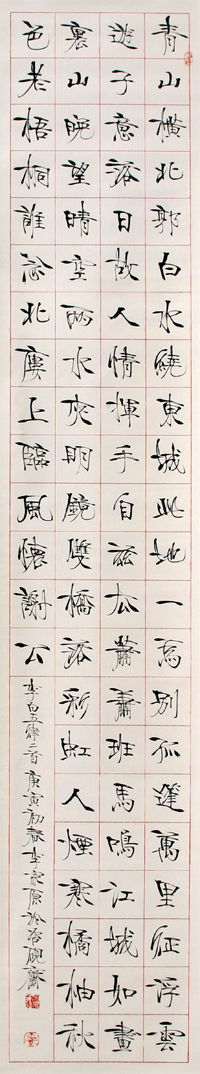 青山橫北郭白水繞東城此地一為別孤蓬萬里征浮雲
遊子意落日故人情揮手自茲去蕭蕭班馬鳴江城如畫
裏山晚望晴空兩水夾明鏡雙橋落彩虹人煙寒橘柚秋
色老梧桐誰念北樓上臨風懷謝公
李白五律二首庚寅初春李家原於硯齋